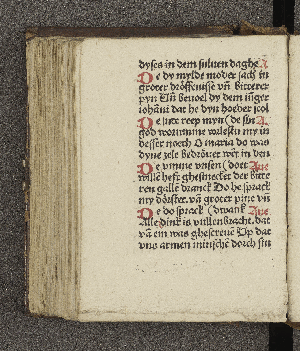 dyses in dem suluen daghe A
De dy mylde moder sach in
groter dröffenisse vñ bitterer
pyn Vñ beuol dy dem iũger
iohãni dat he dyn hoeder scol
De lute reep myn ( de sin A
god worumme vorlestu my in
desser noeth O maria do was
dyne zele bedröuet wēt in den
De vmme vnsen ( doet Aue
willē heft ghesmecket der bitte
ren galle dranck Do he sprack
my dörstet. vā groter pine vñ
De do sprack ( dwank Aue
Alle dink is vullenbracht. dat
vā em was ghescreuē Op dat
vns armen minschē dorch sin